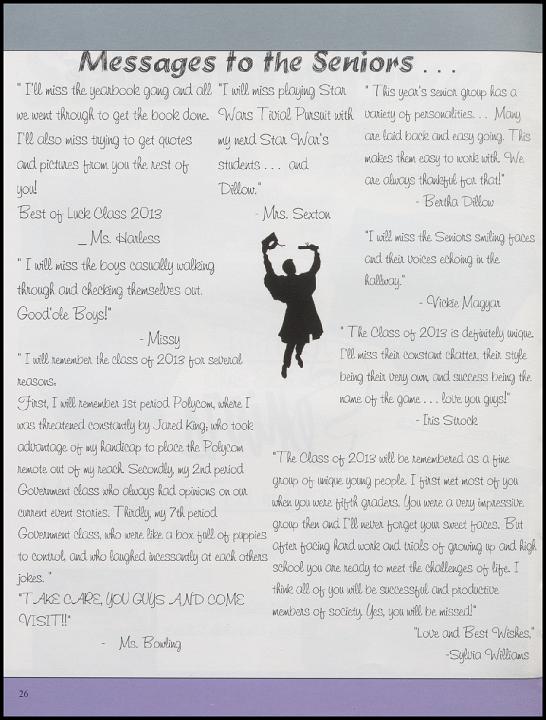 Messages to the Seniors . . .
" I'll miss the yearbook gang and all
we went through to get the book done.
I'll also miss trying to get quotes
and pictures from you the rest of
you!
Best of Luck Class 2013
_ Ms. Harless
" I will miss the boys casually walking
through and checking themselves out.
Good'ole Boys!"
- Missy
" I will remember the class of 2013 for several
reasons:
First, I will remember 1st period Polycom, where I
was threatened constantly by Jared King; who took
advantage of my handicap to place the Polycom
remote out of my reach. Secondly, my 2nd period
Government class who always had opinions on our
current event stories. Thirdly, my 7th period
Government class, who were like a box full of puppies
to control, and who laughed incessantly at each others
jokes. "
"TAKE CARE, YOU GUYS AND COME
VISIT!!"
- Ms. Bowling
"I will miss playing Star
Wars Tivial Pursuit with
my nerd Star War's
students . . . and
Dillow."
- Mrs. Sexton
" This year's senior group has a
variety of personalities. . . Many
are laid back and easy going. This
makes them easy to work with. We
are always thankful for that!"
- Bertha Dillow
"I will miss the Seniors smiling faces
and their voices echoing in the
hallway."
- Vickie Magyar
" The Class of 2013 is definitely unique.
I'll miss their constant chatter, their style
being their very own, and success being the
name of the game . . . love you guys!"
- Iris Strock
"The Class of 2013 will be remembered as a fine
group of unique young people. I first met most of you
when you were fifth graders. You were a very impressive
group then and I'll never forget your sweet faces. But
after facing hard work and trials of growing up and high
school you are ready to meet the challenges of life. I
think all of you will be successful and productive
members of society. Yes, you will be missed!"
"Love and Best Wishes,"
-Sylvia Williams
26